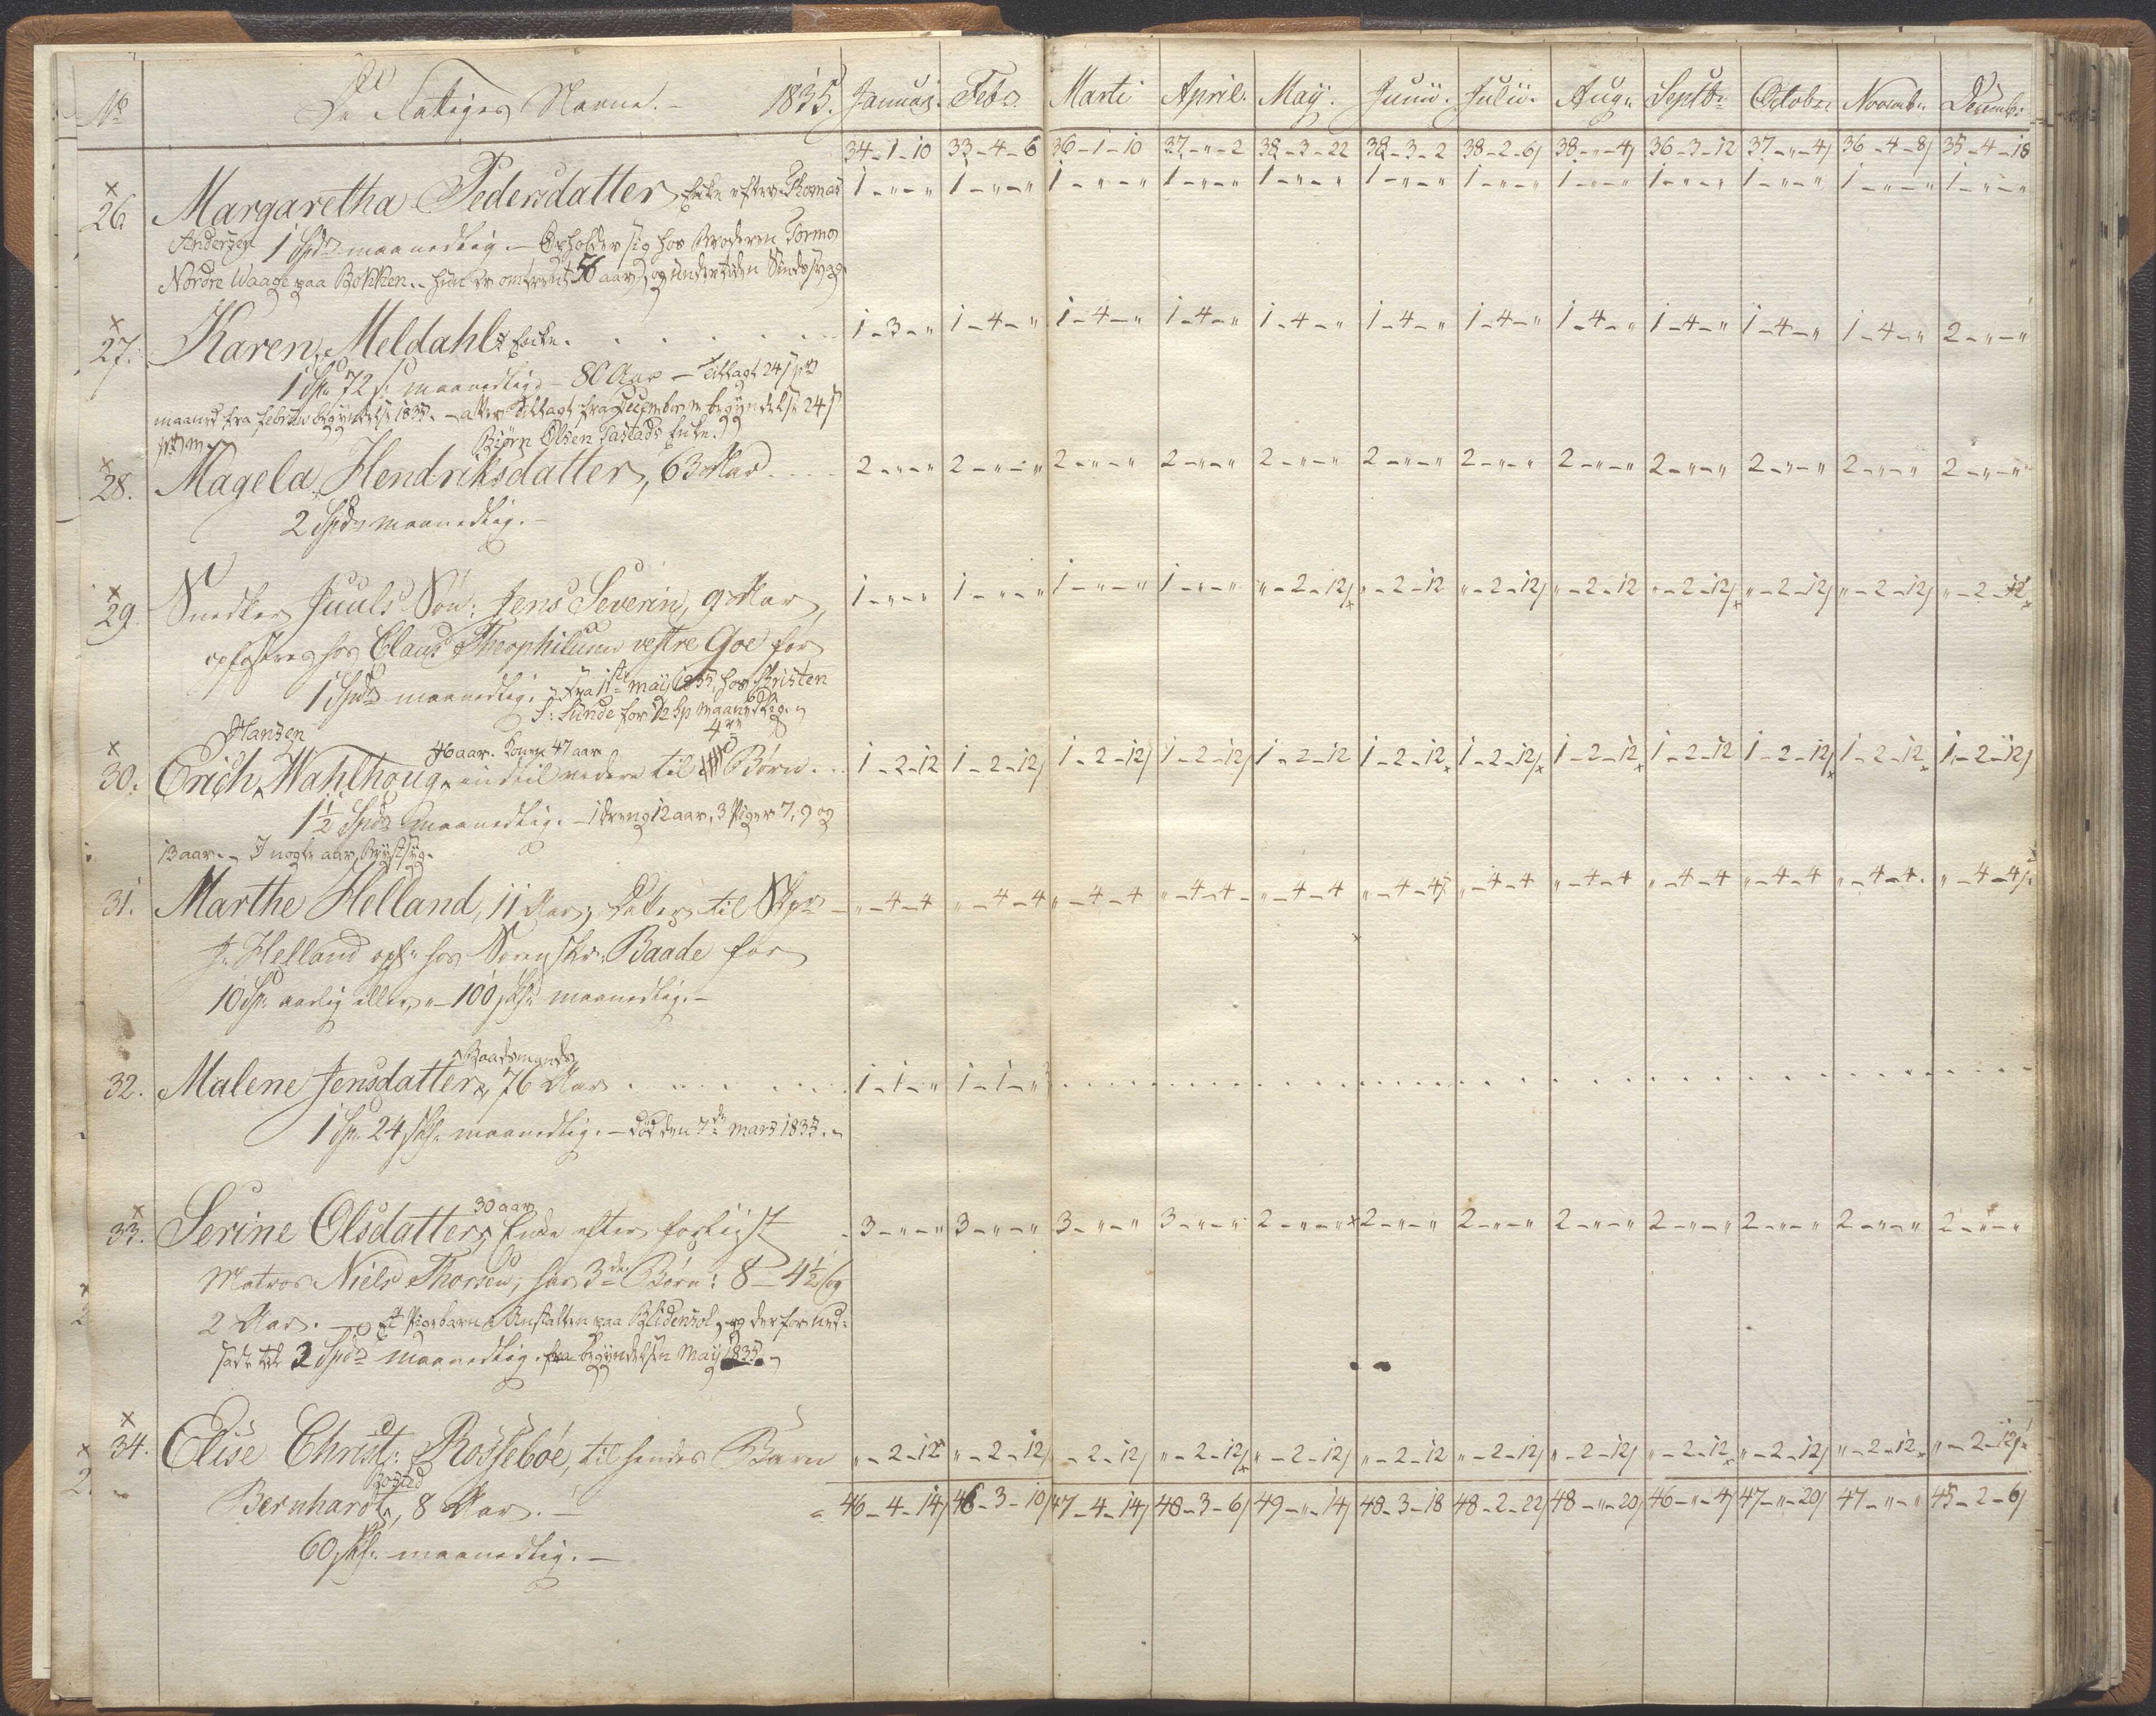 No De Fattiges Navne. – 1835. Januar. Febr. Marti April. May. Junii. Julii. Aug: Septb: Octobr: Novemb: Decemb:
34-1-10 33-4-6 36-1-10 37-"-2 38-3-22 38-3-2 38-2-6 38-"-4 36-3-12 37-"-4 36-4-8 35-4-18
26. Margaretha Pedersdatter, Enke efter Thomas 1-"-" 1-"-" 1-"-" 1-"-" 1-"-" 1-"-" 1-"-" 1-"-" 1-"-" 1-"-" 1-"-" 1-"-"
Andersen 1 Spd maanedlig. – Opholder sig hos Broderen Tormo
Nordre Waage paa Bokken. – hun er omtrent 56 aar, og undertiden Sindssyg.
27. Karen Meldahls Enke. 1-3-" 1-4-" 1-4-" 1-4-" 1-4-" 1-4-" 1-4-" 1-4-" 1-4-" 1-4-" 1-4-" 2-"-"
1 Sp. 72 s. maanedlig – 80 Aar – Tillagt 24 s pr
maaned fra Februar begyndelse 1835. – atter tillagt fra Decembers begyndelse 24 s
pr. m. Biørn Olsen Tastads Enke.
28. Magela Hendriksdatter, 63 Aar 2-"-" 2-"-" 2-"-" 2-"-" 2-"-" 2-"-" 2-"-" 2-"-" 2-"-" 2-"-" 2-"-" 2-"-"
2 Spd maanedlig. –
29. Snedker Juuls Søn: Jens Severin, 9 Aar, 1-"-" 1-"-" 1-"-" 1-"-" "-2-12 "-2-12 "-2-12 "-2-12 "-2-12 "-2-12 "-2-12 "-2-12
opfostres hos Claus Theophilusen vestre Goe for
1 Spd maanedlig. – Fra 1ste May 1835, hos Kristen
S: Sunde for 1/2 Sp maanedlig.
Hansen 46 aar. Konen 47 aar 4re
30. Erich Wahlhoug, endeel videre til Børn. 1-2-12 1-2-12 1-2-12 1-2-12 1-2-12 1-2-12 1-2-12 1-2-12 1-2-12 1-2-12 1-2-12 1-2-12
1 1/2 Spd maanedlig. – 1 dreng 12 aar, 3 Piger 7, 9 og
13 aar. – I nogle aar brystsyg.
31. Marthe Helland, 11 Aar, Datter til Skpr "-4-4 "-4-4 "-4-4 "-4-4 "-4-4 "-4-4 "-4-4 "-4-4 "-4-4 "-4-4 "-4-4 "-4-4
J. Helland opf: hos Sorenskr: Baade for
10 Sp. aarlig eller "-100 sk. maanedlig. –
Baadsmands
32. Malene Jensdatter, 76 Aar 1-1-" 1-1-"
1 Sp. 24 sk. maanedlig. – Død den 7de Mars 1835.
30 aar
33. Serine Olsdatter, Enke efter forliist 3-"-" 3-"-" 3-"-" 3-"-" 2-"-" 2-"-" 2-"-" 2-"-" 2-"-" 2-"-" 2-"-" 2-"-"
Matros Niels Thorsen, har 3de Børn: 8 – 4 1/2 og
2 Aar. – Et Pigebarn i Anstalten paa Blidensol, og derfor ned-
sadt til 2 Spd maanedlig fra begyndelsen May 1835.
34. Elise Christ: Rossebøe, til hendes Barn "-2-12 "-2-12 "-2-12 "-2-12 "-2-12 "-2-12 "-2-12 "-2-12 "-2-12 "-2-12 "-2-12 "-2-12
Bernhard, 8 Aar. – 46-4-14 46-3-10 47-4-14 48-3-6 49-"-14 48-3-18 48-2-22 48-"-20 46-"-4 47-"-20 47-"-" 45-2-6
60 sk. maanedlig. –